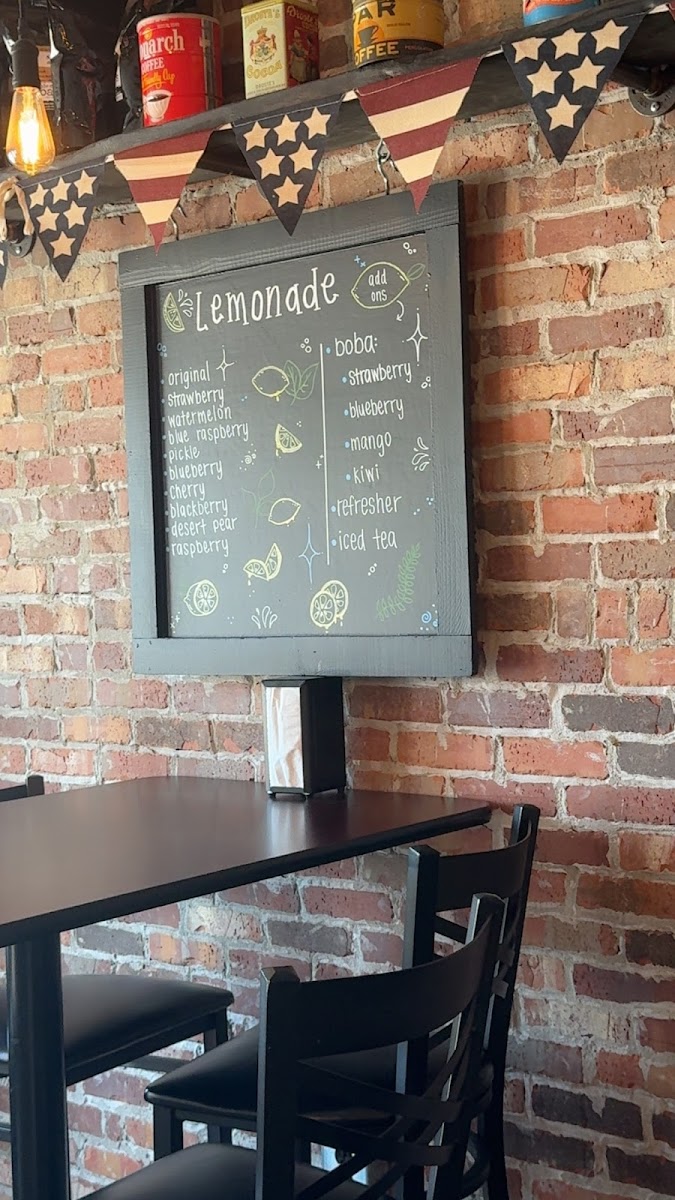 arch
COFFEE
Friendly Cup
DROSTE'S
COCOA
AR
COFFEE
Lemonade
add
ons
• original
• strawberry
• watermelon
• blue raspberry
• pickle
• blueberry
• cherry
• blackberry
• desert pear
• raspberry
• boba:
• strawberry
• blueberry
• mango
• kiwi
• refresher
• iced tea